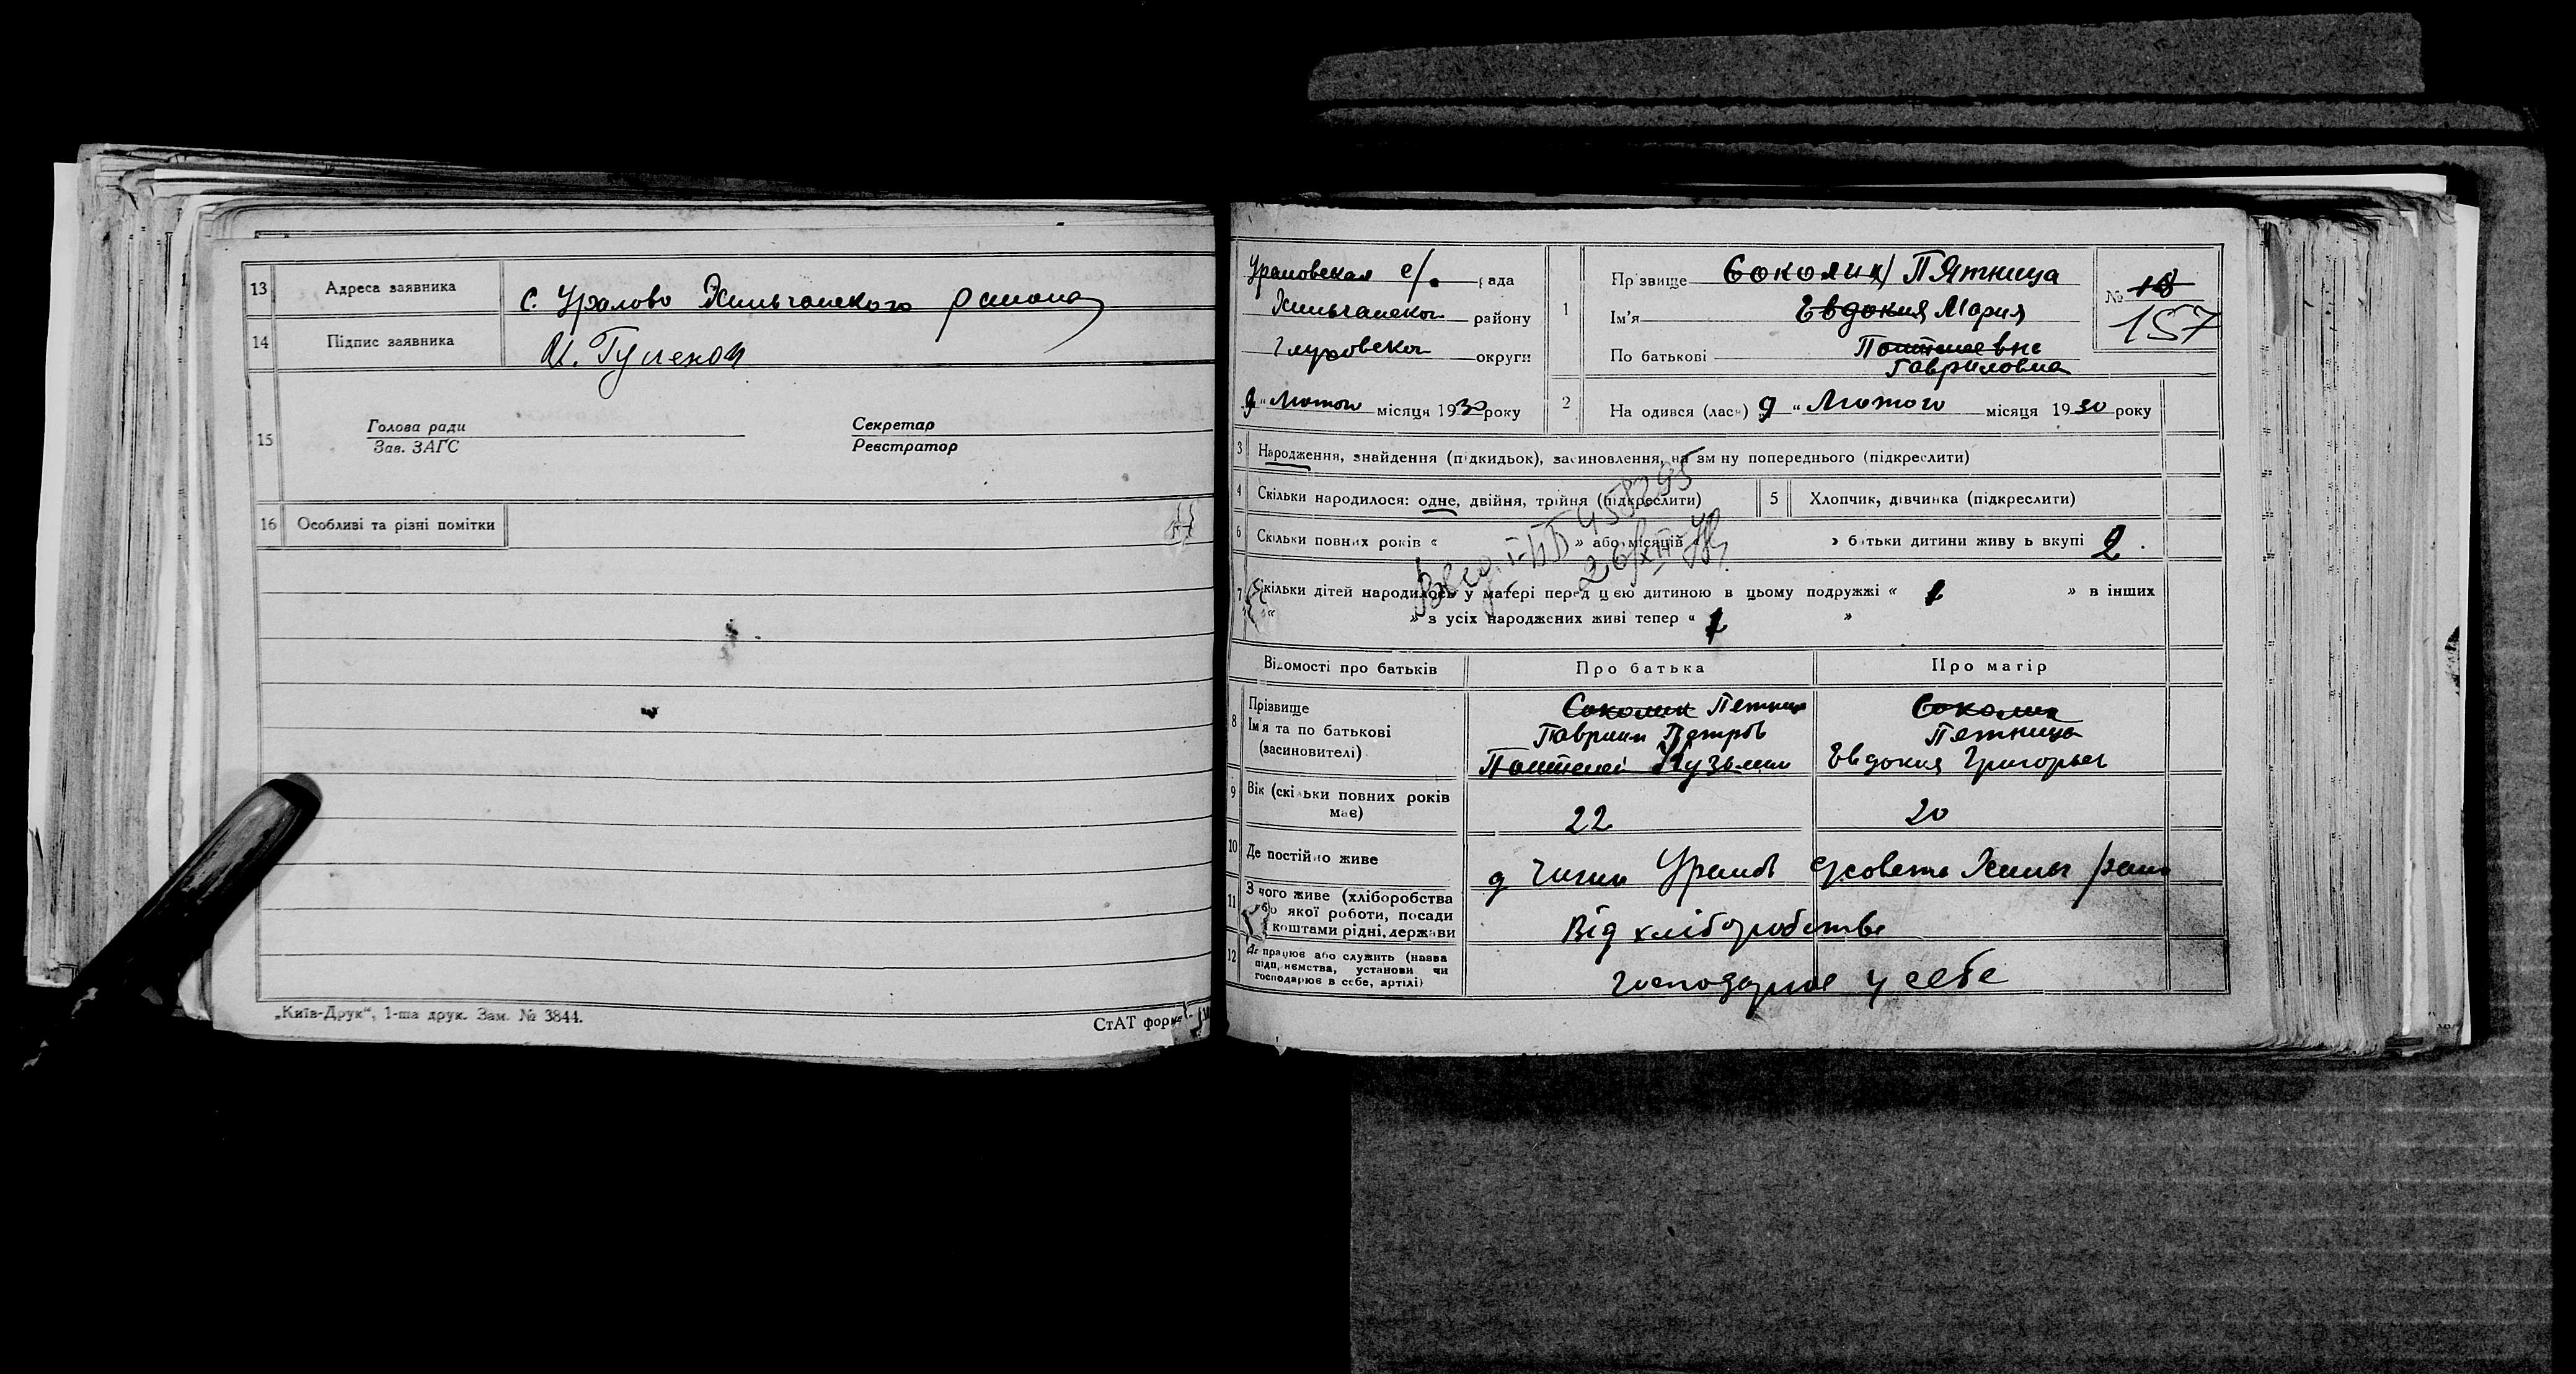 13 Адреса заявника с. Уралово Хильчанского района
14 Підпис заявника
15 Голова ради Секретар
Зав. ЗАГС Реєстратор
16 Особливі та різні помітки
„Київ-Друк“, 1-ша друк. Зам. № 3844.
СтАТ форм
Ураловская с/. рада
району
Глуховской округи
9 „ Лютого місяця 1930 року
1 Прізвище Соколик Пятница
Ім'я Евдокия Мария
По батькові Пантелеевне
Гавриловна
№ 18
157
2 На одився (лась) 9 „ Лютого місяця 1930 року
3 Народження, знайдення (підкидьок), засиновлення, на зм ну попереднього (підкреслити)
4 Скільки народилося: одне, двійня, трійня (підкреслити) 5 Хлопчик, дівчинка (підкреслити)
6 Скільки повних років « » або місяців « » батьки дитини живу ь вкупі 2.
7 Скільки дітей народилось у матері перед цією дитиною в цьому подружжі « 1 » в інших
« » з усіх народжених живі тепер « 1 »
Відомості про батьків Про батька Про матір
8 Прізвище
Ім'я та по батькові
(засиновителі)
Соколик Петница
Гаврилл Петров
Пантелей Кузьмич
Соколик
Петница
Евдокия Григорьев
9 Вік (скільки повних років
має) 22 20
10 Де постійно живе
11 З чого живе (хліборобства
бо якої роботи, посади
коштами рідні, держави Від хліборобства
12 Де працює або служить (назва
підп, немства, установи чи
господарює в себе, артілі) господарює у себе